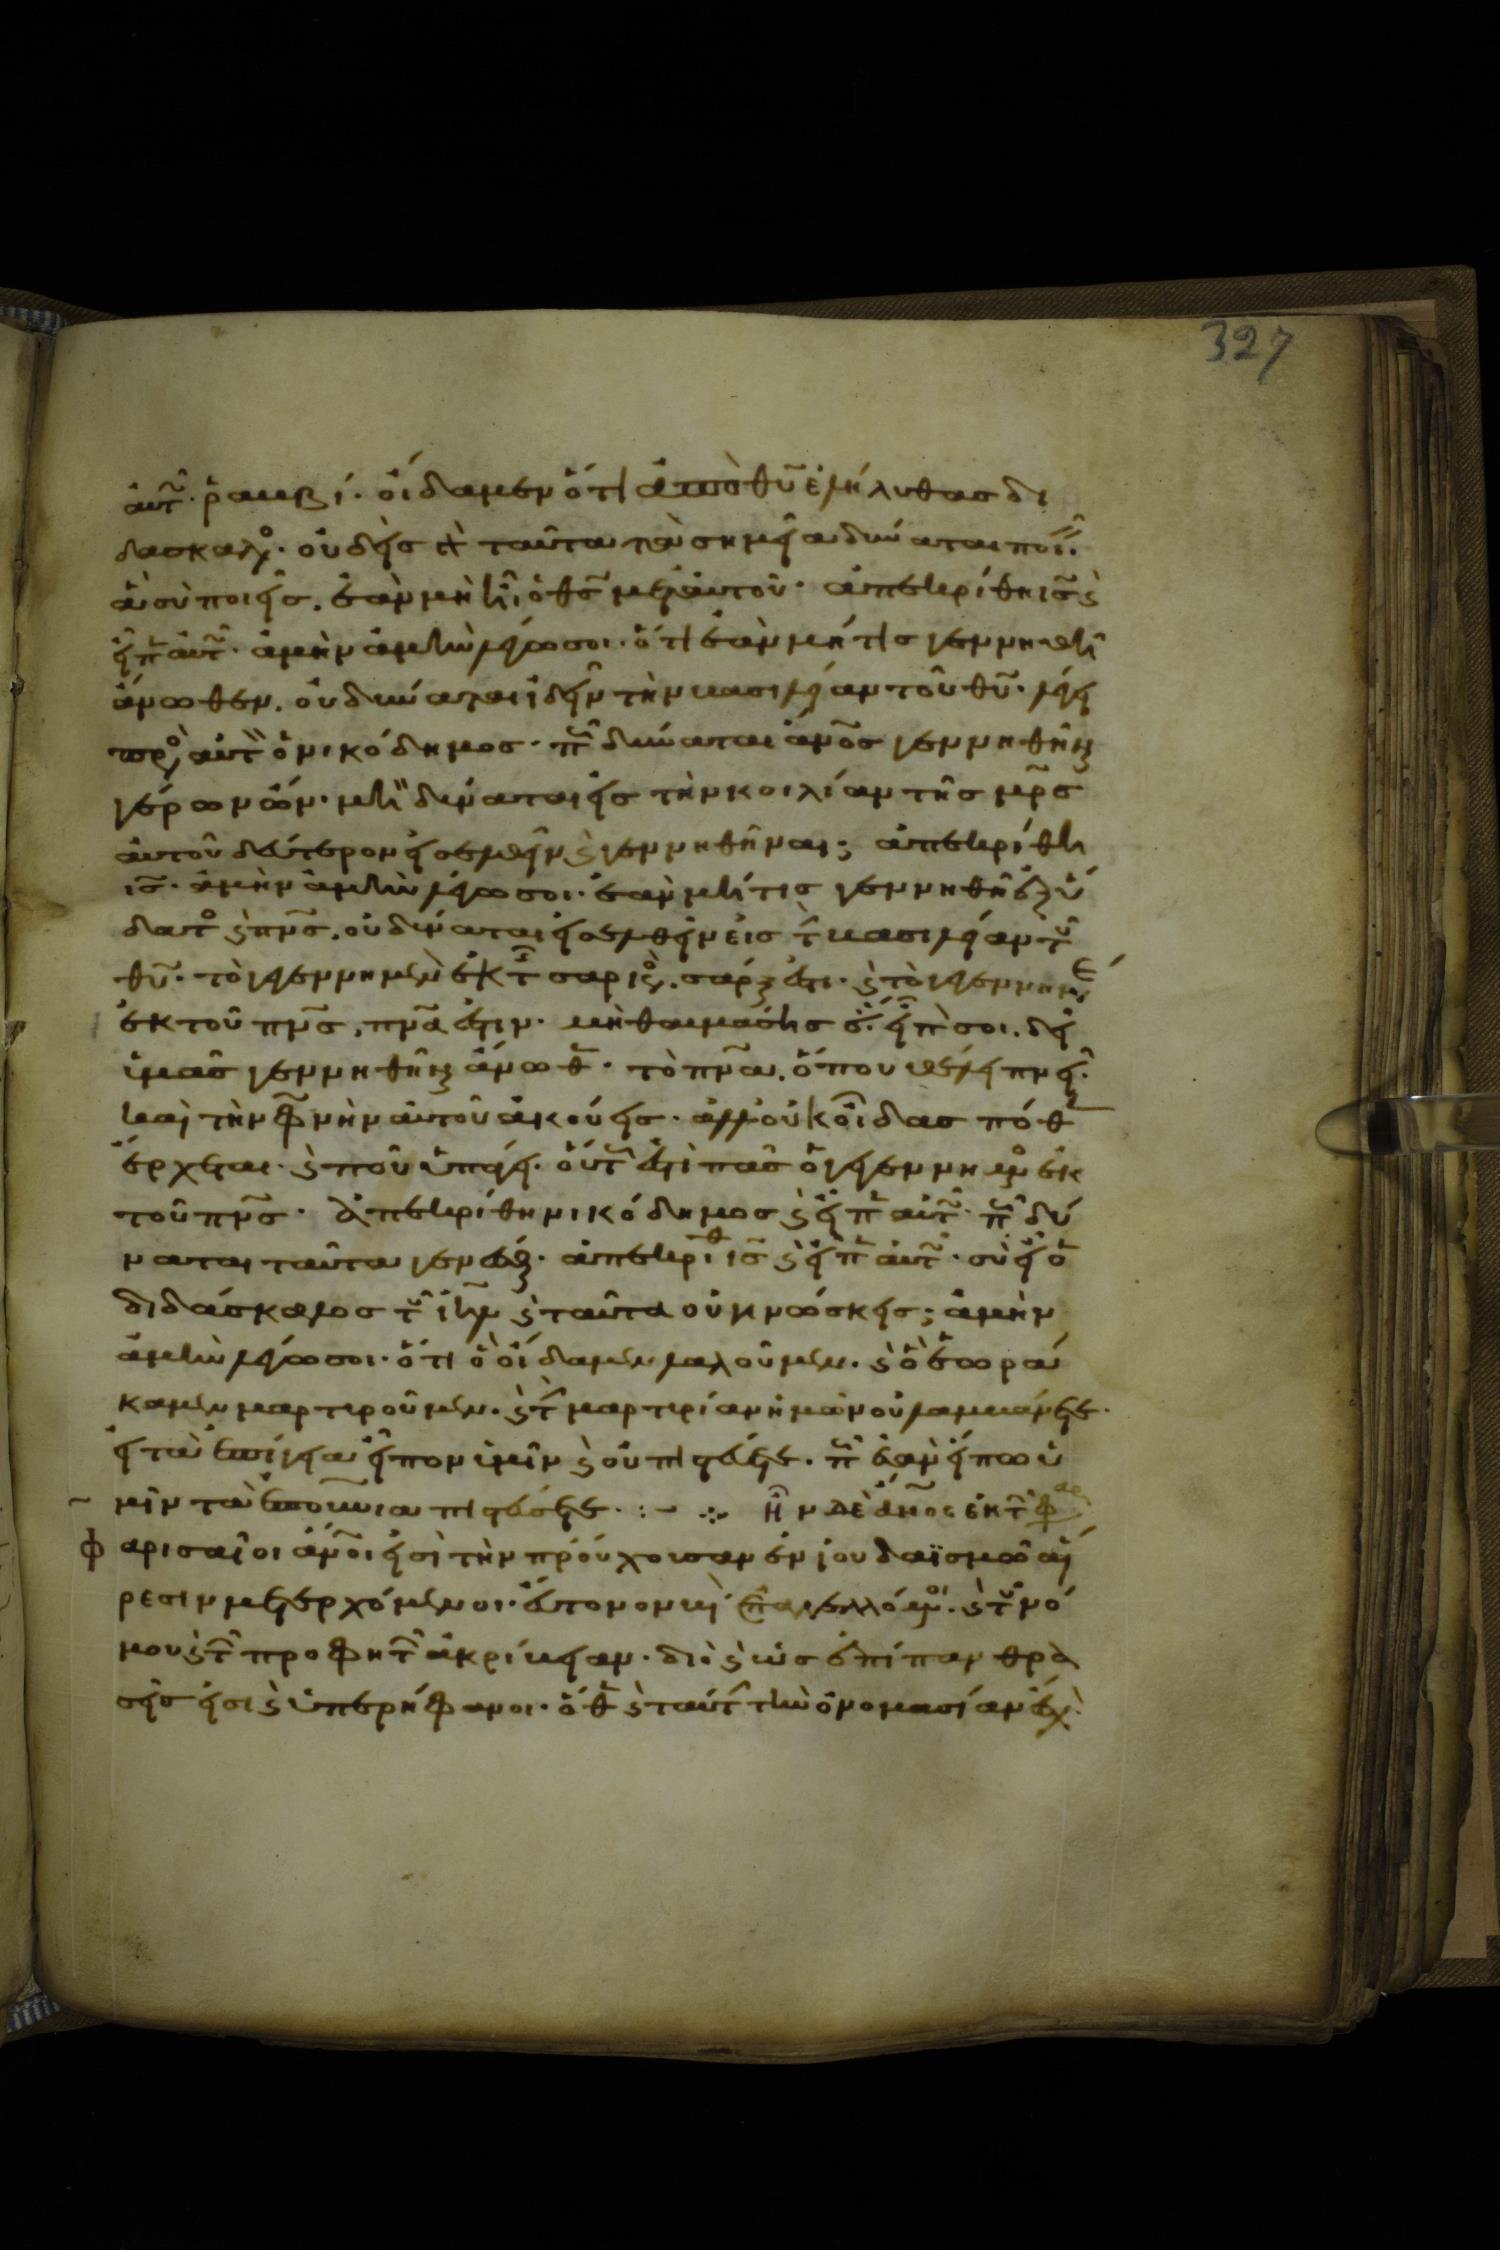 327
αὐτῶ· ῥαββί· οἴδαμεν ὅτι ἀπὸ θ̅υ̅ ἐλήλυθας δι
δάσκαλος· οὐδεὶς γὰρ ταῦτα τὰ σημεῖα δύναται ποιεῖν
ἃ σὺ ποιεῖς. ἐὰν μὴ ἦ ὁ θ̅ς̅ μετ αὐτοῦ· ἀπεκρίθη ι̅ς̅ καὶ
εἶπεν αὐτῶ· ἀμὴν ἀμὴν λέγω σοι· ὅτι ἐὰν μή τις γεννηθῆ
ἄνωθεν. οὐ δύναται ἰδεῖν τὴν βασιλείαν τοῦ θ̅υ̅· λέγει
πρὸς αὐτὸν ὁ νικόδημος· πῶς δύναται ἄν̅ο̅ς̅ γεννηθῆναι
γέρων ὤν· μὴ δύναται εἰς τὴν κοιλίαν τῆς μ̅ρ̅ς̅
αὐτοῦ δεύτερον εἰσελθεῖν καὶ γεννηθῆναι; ἀπεκρίθη
ι̅ς̅· ἀμὴν ἀμὴν λέγω σοι· ἐὰν μή τις γεννηθῆ ἐξ ὕ
δατος καὶ π̅ν̅ς̅. οὐ δύναται εἰσελθεῖν εἰς τὴν βασιλείαν τοῦ
θ̅υ̅· τὸ γεγεννημένον ἐκ τῆς σαρκὸς. σάρξ ἐστι· καὶ τὸ γεγεννημέ
ἐκ τοῦ π̅ν̅ς̅, π̅ν̅α̅ ἐστιν· μὴ θαυμάσης ὅτι εἶπόν σοι. δεῖ
ὑμᾶς γεννηθῆναι ἄνωθεν· τὸ π̅ν̅α̅. ὅπου θέλει πνεῖ·
καὶ τὴν φωνὴν αὐτοῦ ἀκούεις· ἀλλ οὐκ οἶδας πόθεν
ἔρχεται· καὶ ποῦ ὑπάγει· οὕτως ἐστὶ πᾶς ὁ γεγεννημένος ἐκ
τοῦ π̅ν̅ς̅· ἀπεκρίθη νικόδημος καὶ εἶπεν αὐτῶ· πῶς δύ
ναται ταῦτα γενέσθαι· ἀπεκρίθη ι̅ς̅ καὶ εἶπεν αὐτῶ· σὺ εἶ ὁ
διδάσκαλος τοῦ ι̅η̅λ̅ καὶ ταῦτα οὐ γινώσκεις; ἀμὴν
ἀμὴν λέγω σοι· ὅτι ὃ οἴδαμεν λαλοῦμεν. καὶ ὃ ἑωρά
καμεν μαρτυροῦμεν. καὶ τὴν μαρτυρίαν ἡμῶν οὐ λαμβάνετε.
εἰ τὰ ἐπίγεια εἶπον ὑμῖν καὶ οὐ πιστεύετε. πῶς ἐὰν εἴπω ὑ
μῖν τὰ ἐπουράνια πιστεύσετε· :– ⁘ ἦν δὲ ἄν̅ο̅ς̅ ἐκ τῶν φα
φ ἀρισαῖοι ἄν̅οι εἰσὶ τὴν προύχουσαν ἐν ἰουδαϊσμῶ αἵ
ρεσιν μετερχόμενοι· ἅτε νομικοὶ ἐπαγγελλόμενοι. καὶ τοῦ νό
μου καὶ τῶν προφητῶν ἀκρίβειαν. διὸ καὶ ὡς ἐπίπαν θρα
σεῖς εἰσι καὶ ὑπερήφανοι· ὅθεν καὶ ταύτην τὴν ὀνομασίαν ἔχει